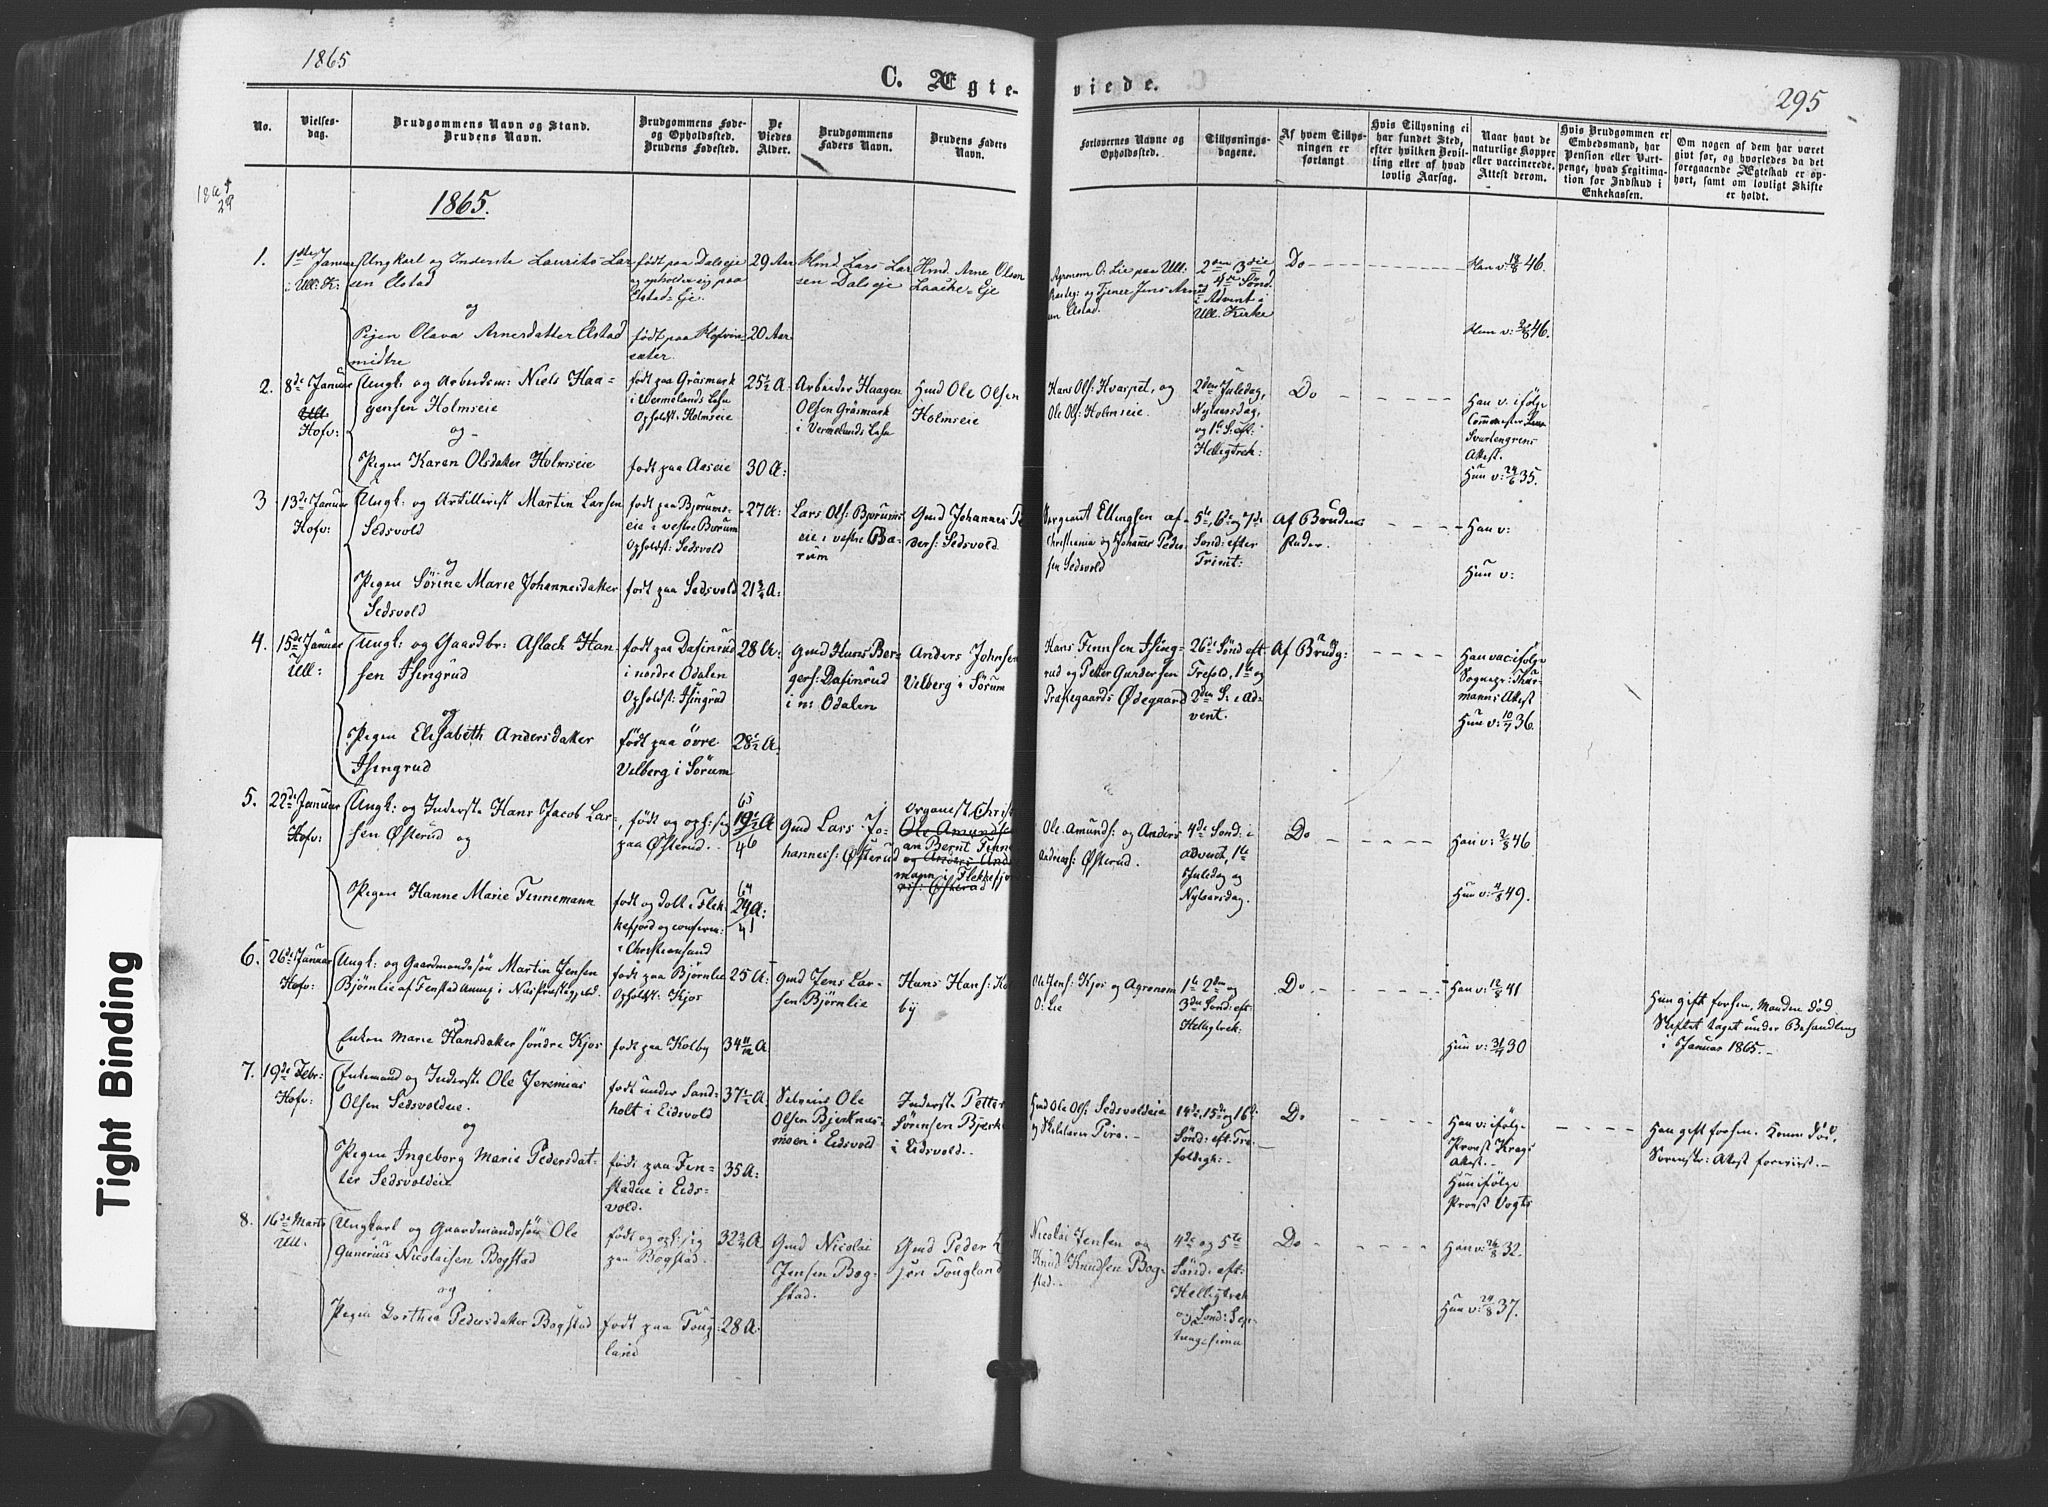 1865
C. Ægte-
viede.
295
No.
Vielses-
dag.
Brudgommens Navn og Stand.
Brudens Navn.
Brudgommens Føde-
og Opholdssted.
Brudens Fødested.
De
Viedes
Alder.
Brudgommens
Faders Navn.
Brudens Faders
Navn.
Forlovernes Navne og
Opholdssted.
Tillysnings-
dagene.
Af hvem Tillys-
ningen er
forlangt.
Hvis Tillysning ei
har fundet Sted,
efter hvilken Bevil-
ling eller af hvad
lovlig Aarsag.
Naar havt de
naturlige Kopper
eller vaccinerede.
Attest derom.
Hvis Brudgommen er
Embedsmand, har
Pension eller Vart-
penge, hvad Legitima-
tion for Indskud i
Enkekassen.
Om nogen af dem har været
gift før, og hvorledes da det
foregaaende Ægteskab er op-
hørt, samt om lovligt Skifte
er holdt.
1865.
1.
1ste Januar
i Ull: K:
Ungkarl og Inderste Laurits Lar-
sen Elstad
og
Pigen Olava Arnesdatter Elstad
midtre
født paa Dalseje
og opholder sig paa
Elstad-Eje.
født paa Hofvin-
sæter.
29 Aar
20 Aar
Hmd. Lars Lar-
sen Dalseje
Hmd. Arne Olsen
Laache-Eje
Agronom O. Lie paa Ull:
og Tjener Jens
Elstad.
2den 3die
og 4de Sønd.
i Advent i
Ull. Kirke
Do
Han v: 18/8 46.
Hun v: 46.
2.
8de Januar
Ull:
Hofv:
Ungk: og Arbeidsm: Niels Haa-
gensen Holmseie
og
Pigen Karen Olsdatter Holmseie
født paa Gräsmark
i Wermelands Lehn
Opholdst: Holmseie
født paa Aaseie
25½ A:
30 A:
Arbeider Haagen
Olsen Gräsmark
i Vermelands Lehn
Hmd Ole Olsen
Holmseie
Hans Ols: Kvaspet, og
Ole Ols: Holmseie.
2den Juledag,
Nytaarsdag,
og 1te S: eft:
Helligtrek:
Do
Han v. ifølge
Svartengrens
Attest.
Hun v: 24/6 35.
3
13de Januar
Hofv:
Ungk: og Artillerist Martin Larsen
Sedsvold
og
Pigen Sörine Marie Johannesdatter
Sedsvold
født paa Bjørums-
eie i vestre Bærum
Opholdst: Sedsvold
født paa Sedsvold
27 A:
21¾ A:
Lars Ols: Bjørums
eie i vestre Bæ-
rum
Gmd Johannes Pe-
ders: Sedsvold
Sergeant Ellingsen af
Christiania og Johannes Peder-
sen Sedsvold
5te, 6te og 7de
Sønd: efter
Trinit:
Af Brudens
Fader.
Han v:
Hun v:
4.
15de Januar
Ull:
Ungk: og Gaardbr: Aslack Han-
sen Isingrud
og
Pigen Elisabeth Andersdatter
Isingrud
født paa Dasinrud
i nordre Odalen
Opholdst: Isingrud
født paa övre
Velberg i Sörum
28 A:
28½ A:
Gmd Hans Ber-
gers: Dasinrud
i n: Odalen
Anders Johnsen
Velberg i Sörum
Hans Finnsen Ising-
rud og Petter Gundersen
Præstegaards Ødegaard
26de Sönd eft
Trefold, 1te og
2den S: i Ad-
vent.
Af Brudg:
Han vac: ifølge
Sognepr: Thur-
manns Attest
Hun v: 10/7 36.
5.
22de Januar
Hofv:
Ungk: og Inderste Hans Jacob Lar-
sen Østerud og
Pigen Hanne Marie Finnemann
født og oph: sig
paa Østerud.
født og döbt i Flek-
kefjord og confirm:
i Christiansand
65
19½ A
46
64
24 A:
41
Gmd Lars Jo-
hanness: Østerud
Organist Christ
Ole Amundsen
an Bernt Finne
og Anders And
mann i Flekkefjord
rs: Østerud
Ole Amunds: og Anders
Andreas: Østerud.
4de Sønd: i
Advent, 1te
Juledag og
Nytaarsdag.
Do
Han v: 2/8 46.
Hun v: 4/8 49.
6.
26de Januar
Hofv:
Ungk: og Gaardmandssön Martin Jensen
Björnlie af Fenstad Annex i Næs Præstegjeld.
og
Enken Marie Hansdatter söndre Kjos
født paa Björnlie
Opholdst: Kjos
født paa Kolby
25 A:
34 11/12 A.
Gmd Jens Lar-
sen Björnlie
Hans Hans: Kol-
by
Ole Jens: Kjos og Agronom
O: Lie
1te 2den og
3die Sönd: eft
Helligtrek:
Do.
Han v: 12/8 41
Hun v: 31/7 30
Hun gift forhen. Manden död.
Skiftet taget under Behandling
i Januar 1865.
7.
19de Febr:
Hofv:
Enkemand og Inderste Ole Jeremias
Olsen Sedsvoldeie.
og
Pigen Ingeborg Marie Pedersdat-
ter Sedsvoldeie
født under Sand-
holt i Eidsvold
født paa Fen-
stadeie i Eids-
vold.
37½ A.
35 A:
Selveier Ole
Olsen Bjerknes-
moen i Eidsvold
Inderste Petter
Sörensen Bjerke
i Eidsvold.
Hmd Ole Ols: Sedsvoldeie
og Skolelærer Piro.
14de, 15de og 16de
Sönd: eft: Tre-
foldigh:
Do
Han v: ifölge
Provst Krags
Attest.
Hun ifölge
Provst Vogts
Han gift forhen. Konen död,
Sorenskr: Attest foreviist.
8.
16de Marts
Ull.
Ungkarl og Gaardmandssön Ole
Gunerius Nicolaisen Bogstad
og
Pigen Dorthea Pedersdatter Bogstad
født og oph: sig
paa Bogstad.
født paa Toug-
land
32¾ A
28 A:
Gmd Nicolai
Jensen Bog-
stad.
Gmd Peder
Tougland
Nicolai Jensen og
Knud Knudsen Bog-
stad.
4de og 5te
Sönd: eft:
Helligtrek
og Sönd: Sep-
tuagesima
Do
Han v: 26/8 32.
Hun v: 24/8 37.
Tight Binding